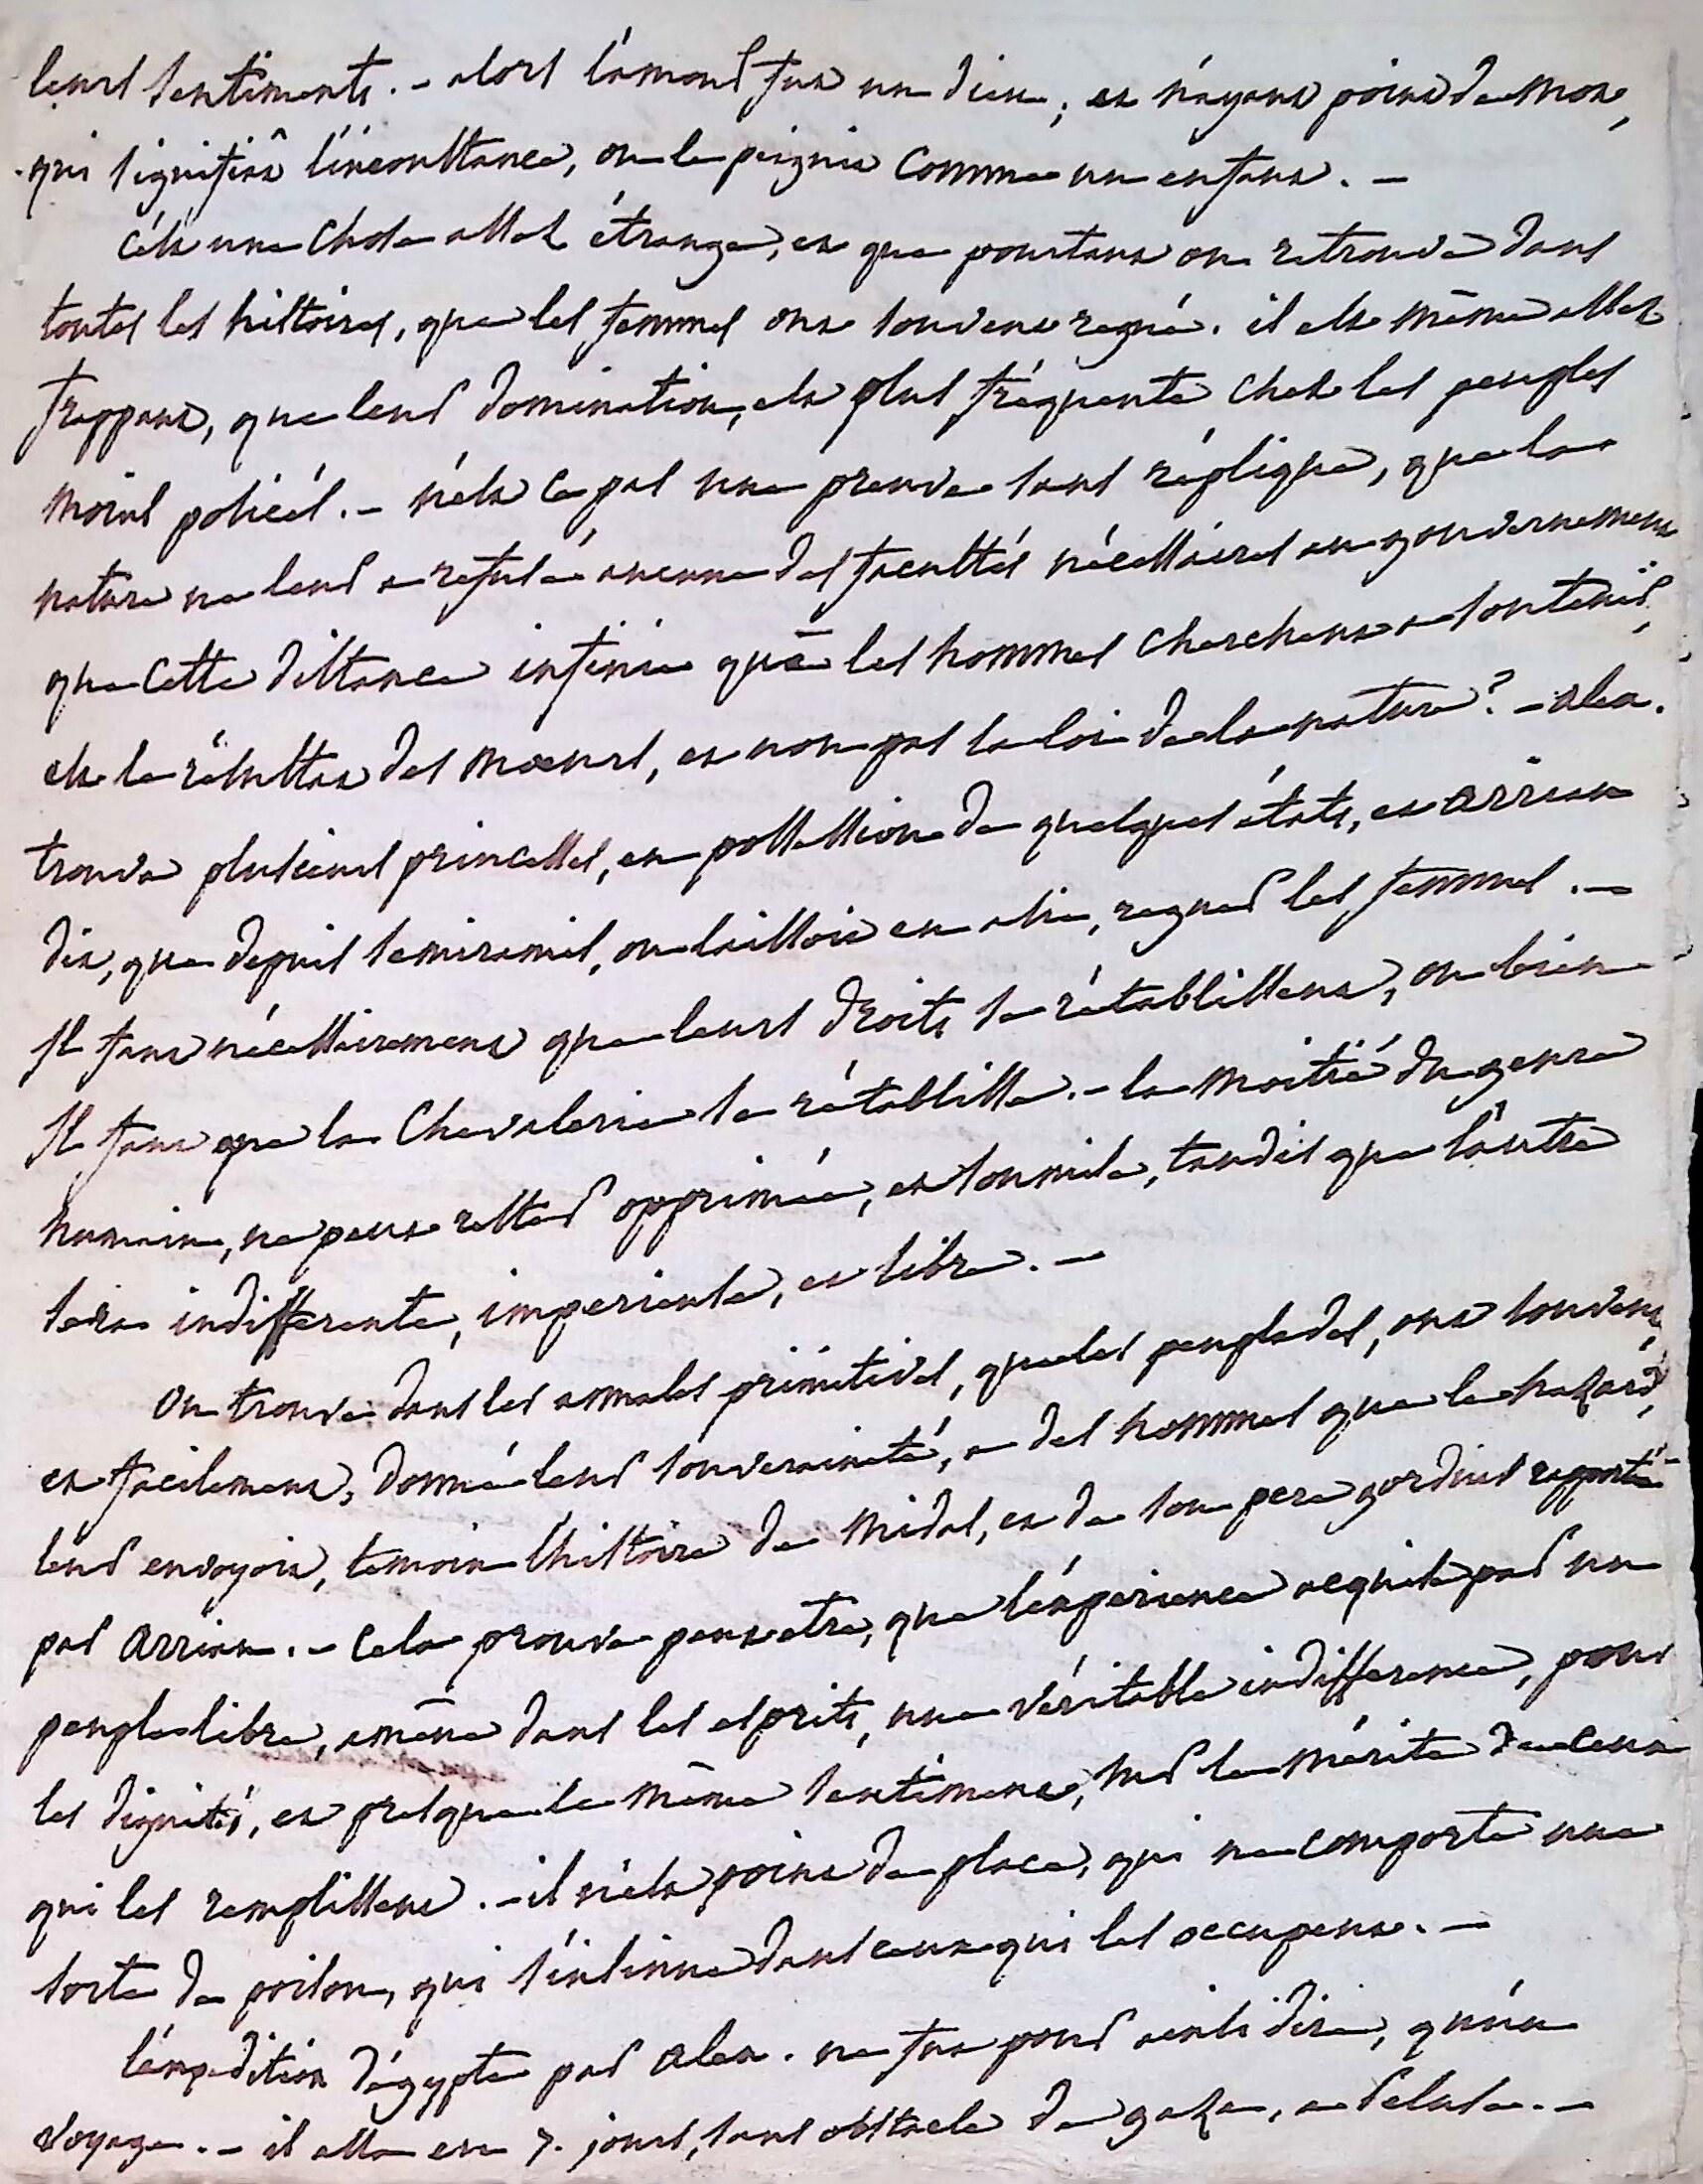 leurs sentiments. – alors l'amour fut un dieu, et n'ayant point de mot,
qui signifiât l'inconstance, on le peignit comme un enfant. –
c'est une chose assez étrange, et que pourtant on retrouve dans
toutes les histoires, que les femmes ont souvent regné. il est même assez
frappant, que leur domination, est plus fréquente chez les peuples
moins policés. – n'est ce pas une preuve sans réplique, que la
nature ne leur a refusé aucune des facultés nécessaires au gouvernement
que cette distance infinie que les hommes cherchent a soutenir,
est le résultat des moeurs, et non pas la loi de la nature? – alex.
trouva plusieurs princesses, en possession de quelques états, et arrien
dit, que depuis semiramis, on laissoit en asie, regner les femmes. –
Il faut nécessairement que leurs droits se rétablissent, ou bien
Il faut que la chevalerie se rétablisse. – la moitié du genre
humain, ne peut rester opprimée, et soumise, tandis que l'autre
sera indifferente, imperieuse, et libre. –
on trouve dans les annales primitives, que les peuplades, ont souvent,
et facilement, donné leur souveraineté, a des hommes que le hazard,
leur envoyoit, temoin l'histoire de midas, et de son pere gordius rapportée
par arrien. – cela prouve peut etre, que l'expérience acquise par un
peuple libre, amène dans les esprits, une véritable indifference, pour
les dignités, et presque le même sentiment, sur le mérite de ceux
qui les remplissent. – il n'est point de place, qui ne comporte une
sorte de poison, qui s'insinue dans ceux qui les occupent. –
l'expédition d'égypte par alex. ne fut pour ainsi dire, qu'un
voyage. – il alla en 7. jours, sans obstacle de gaza, a peluse. –